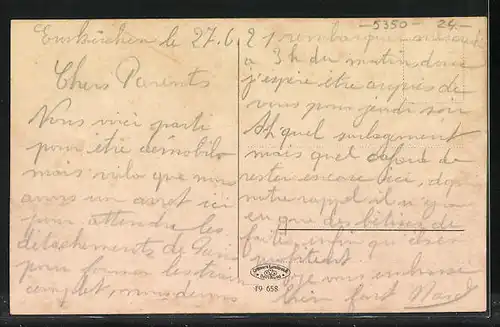 -5350- 24.-
Euskirchen le 27.6.21
Chers Parents
Nous voici parti
pour être démobilo
mais voila que nous
avons un arret ici
pour attendre les
détachements de
pour former le train
complet, nous devons
rembarquer
à 3h du matin donc
j'espère être auprès de
vous pour jeudi soir
Ah quel soulagement
mais quel cafard de
rester encore ici, depuis
notre rappel il n'y a
eu que des bêtises de
faites, enfin
patientent
Je vous embrasse
bien fort Marcel
19 658